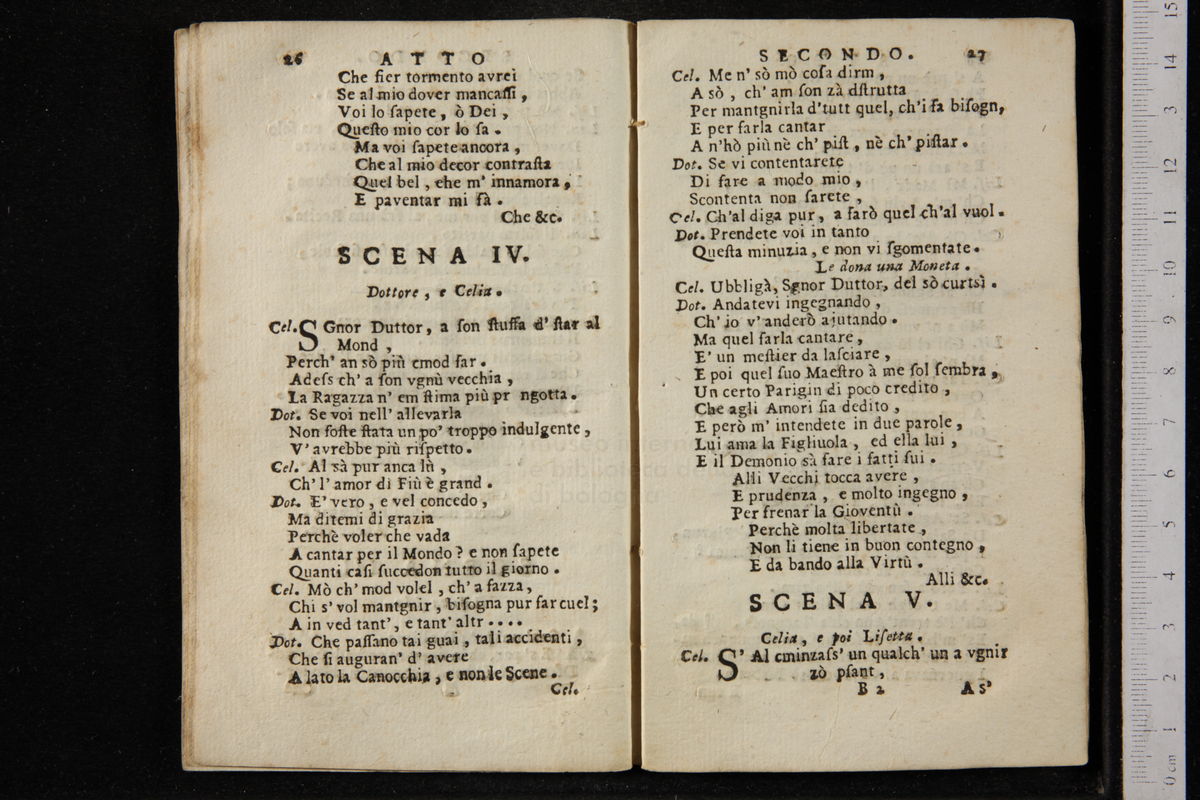 26 ATTO
Che fier tormento avrei
Se al mio dover mancaſſi ,
Voi lo ſapete , ò Dei ,
Queſto mio cor lo ſa .
Ma voi ſapete ancora ,
Che al mio decor contraſta
Quel bel , che m' innamora ,
E paventar mi fà .
Che &c.
SCENA IV.
Dottore , e Celia .
Cel. SGnor Duttor , a ſon ſtuffa d' ſtar al
Mond ,
Perch' an sò più cmod far .
Adeſs ch' a ſon vgnù vecchia ,
La Ragazza n' em ſtima più pr ngotta .
Dot. Se voi nell' allevarla
Non foſte ſtata un po' troppo indulgente ,
V' avrebbe più riſpetto .
Cel. Al sà pur anca lù ,
Ch' l' amor di Fiù è grand .
Dot. E' vero , e vel concedo ,
Ma ditemi di grazia
Perchè voler che vada
A cantar per il Mondo ? e non ſapete
Quanti caſi ſuccedon tutto il giorno .
Cel. Mò ch' mod volel , ch' a fazza ,
Chi s' vol mantgnir , biſogna pur far cuel ;
A in ved tant' , e tant' altr ....
Dot. Che paſſano tai guai , tali accidenti ,
Che ſi auguran' d' avere
A lato la Canocchia , e non le Scene .
Cel.
SECONDO. 27
Cel. Me n' sò mò coſa dirm ,
A sò , ch' am ſon zà dſtrutta
Per mantgnirla d'tutt quel, ch'i fa biſogn,
E per farla cantar
A n'hò più nè ch' piſt , nè ch' piſtar .
Dot. Se vi contentarete
Di fare a modo mio ,
Scontenta non ſarete ,
Cel. Ch'al diga pur , a farò quel ch'al vuol .
Dot. Prendete voi in tanto
Queſta minuzia , e non vi ſgomentate .
Le dona una Moneta .
Cel. Ubbligà, Sgnor Duttor, del sò curtsì .
Dot. Andatevi ingegnando ,
Ch' io v' anderò ajutando .
Ma quel farla cantare ,
E' un meſtier da laſciare ,
E poi quel ſuo Maeſtro à me ſol ſembra ,
Un certo Parigin di poco credito ,
Che agli Amori ſia dedito ,
E però m' intendete in due parole ,
Lui ama la Figliuola , ed ella lui ,
E il Demonio sà fare i fatti ſui .
Alli Vecchi tocca avere ,
E prudenza , e molto ingegno ,
Per frenar la Gioventù .
Perchè molta libertate ,
Non li tiene in buon contegno ,
E da bando alla Virtù .
Alli &c.
SCENA V.
Celia , e poi Liſetta .
Cel. S' Al cminzaſs' un qualch' un a vgnir
zò pſant ,
B 2 A s'